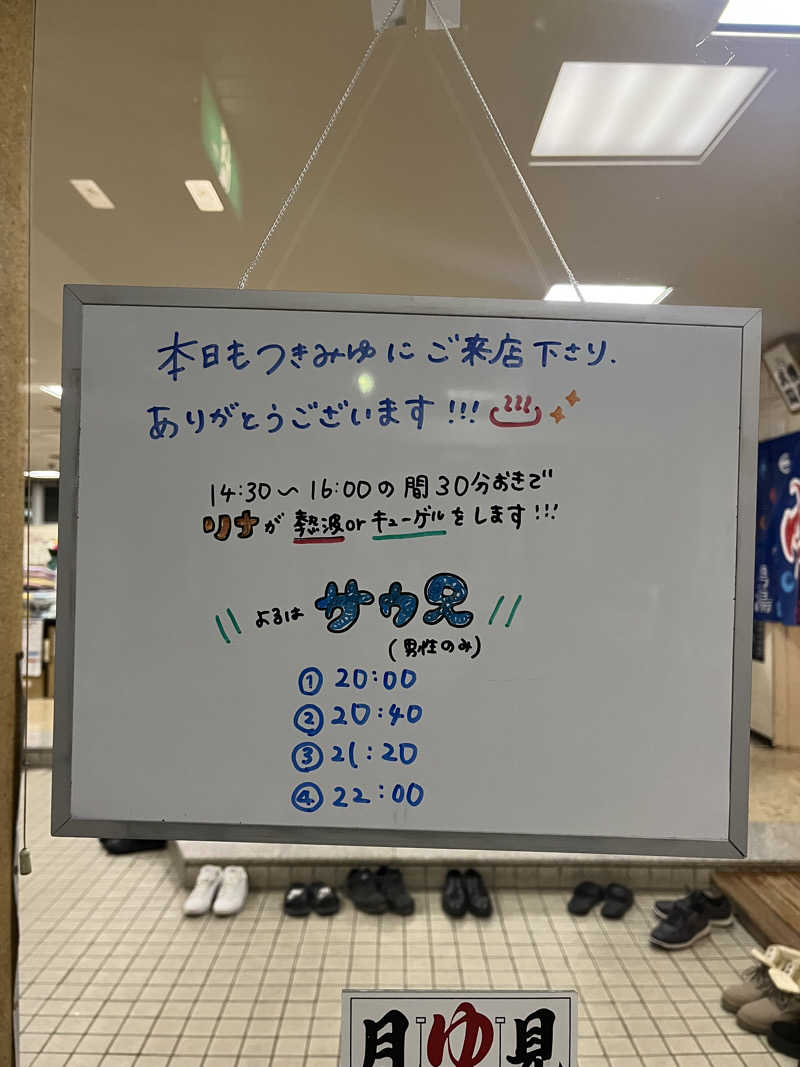 本日もつきみゆにご来店下さり、
ありがとうございます!!!
14:30〜16:00の間30分おきで
リナが熱波orキューゲルをします!!!
よるはサウ兄
(男性のみ)
① 20:00
② 20:40
③ 21:20
④ 22:00
月ゆ見